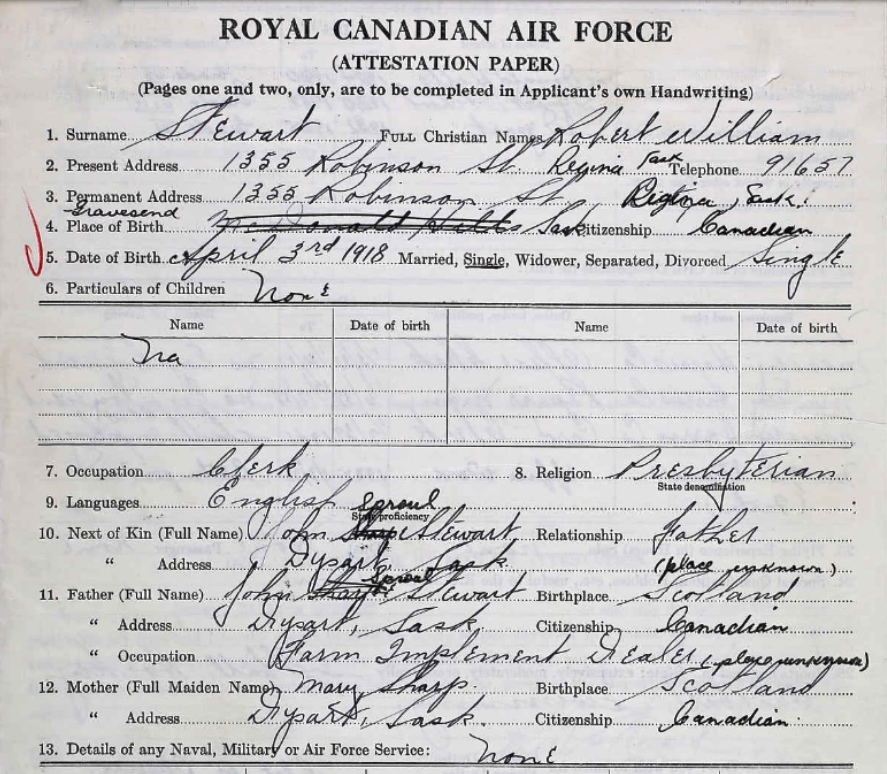 ROYAL CANADIAN AIR FORCE
(ATTESTATION PAPER)
(Pages one and two, only, are to be completed in Applicant's own Handwriting)
1. Surname Stewart Full Christian Names Robert William
2. Present Address 1355 Robinson St. Regina Sask Telephone 91657
3. Permanent Address 1355 Robinson St. Regina, Sask.
Gravesend
4. Place of Birth McDonald Hills Sask Citizenship Canadian
5. Date of Birth April 3rd 1918 Married, Single, Widower, Separated, Divorced Single
6. Particulars of Children None
Name Date of birth Name Date of birth
na
7. Occupation Clerk 8. Religion Presbyterian
State denomination
9. Languages English
State proficiency
Sproul
10. Next of Kin (Full Name) John Sharpe Stewart Relationship Father
" Address Dysart, Sask. (place unknown)
Sproul
11. Father (Full Name) John Sharpe Stewart Birthplace Scotland
" Address Dysart, Sask. Citizenship Canadian
" Occupation Farm Implement Dealer (place unknown)
12. Mother (Full Maiden Name) Mary Sharp Birthplace Scotland
" Address Dysart, Sask. Citizenship Canadian
13. Details of any Naval, Military or Air Force Service: None